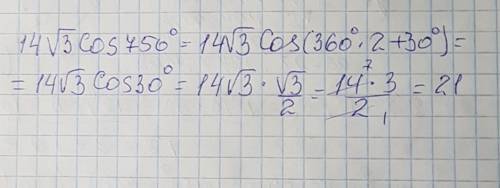 14√3 Cos 750° = 14√3 Cos(360°·2+30°) =
= 14√3 Cos30° = 14√3 · √3/2 = 14⁷·3/2₁ = 21